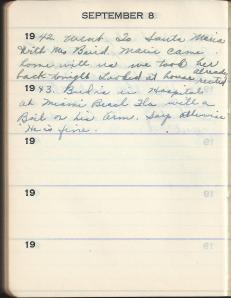 SEPTEMBER 8
1942. Went to Santa Maria
with Mrs Baird. Marie came
home with us we took her
back tonight Looked at house already rented
1943. Bud is in Hospital
at Miami Beach Fla with a
Boil on his arm. Says otherwise
He is fine.
19
19
19